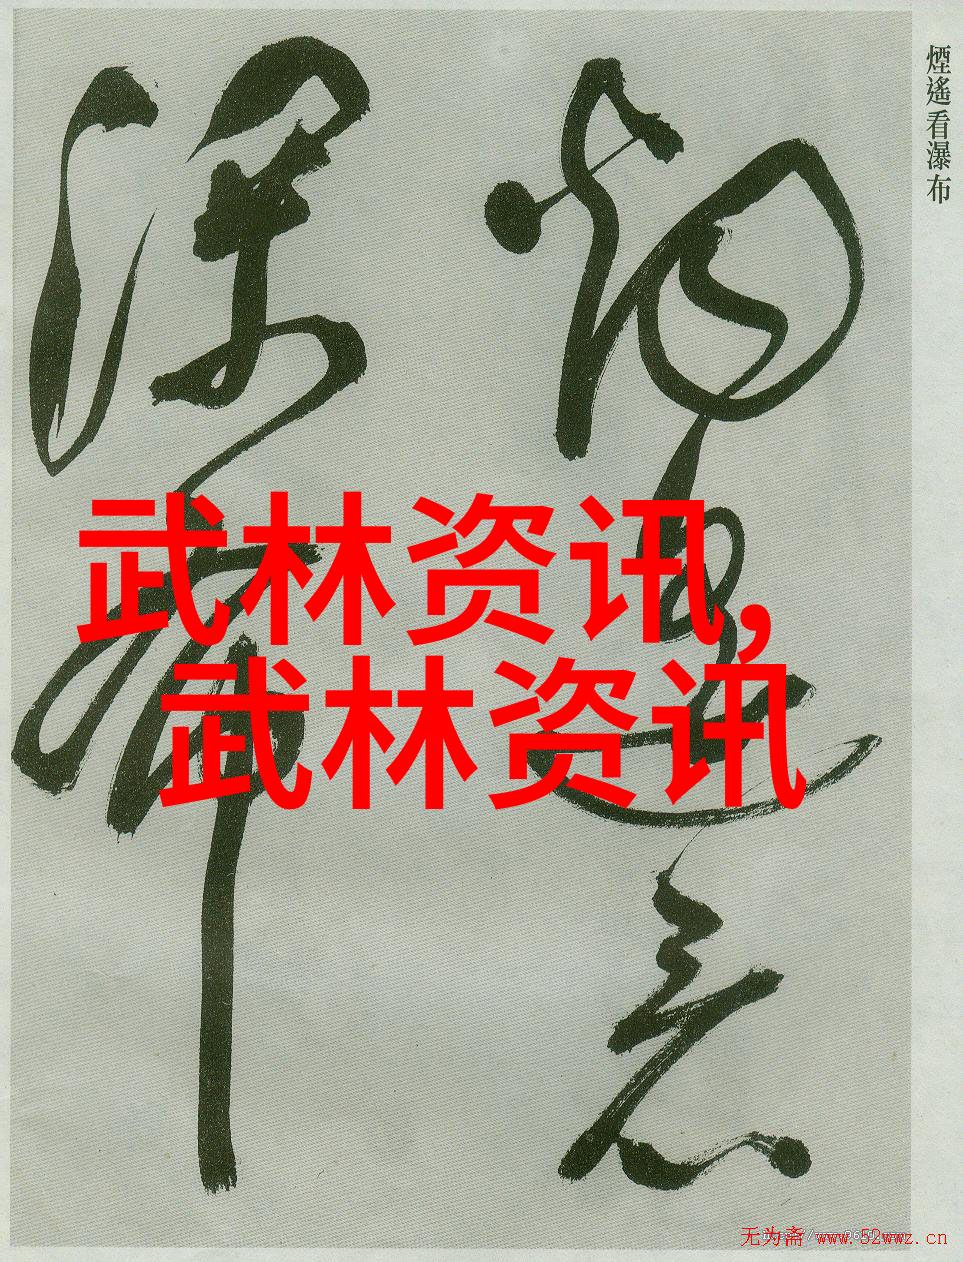 煙遙看瀑布
武林资讯,
武林资讯
无为斋 www.52wwz.cn